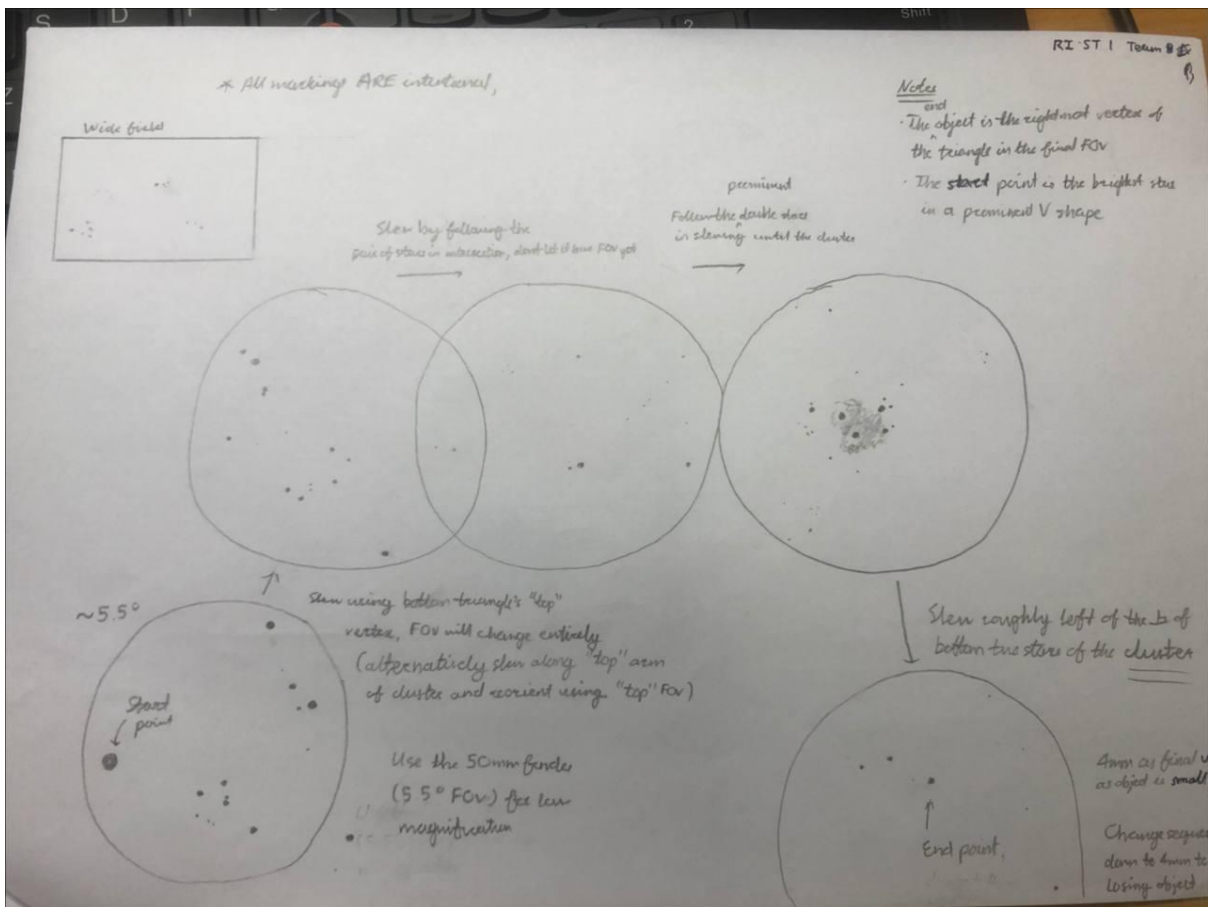 RI ST 1 Team B
* All markings ARE intentional,
Wide field
Notes
end
· The object is the rightmost vertex of
the triangle in the final FOV
· The start point is the brightest star
in a prominent V shape
Slew by following the
pair of stars in intersection, don't let it leave FOV yet
prominent
Follow the double stars
in slewing until the cluster
~5.5°
Start
point
Slew using bottom triangle's "top"
vertex, FOV will change entirely
(alternatively slew along "top" arm
of cluster and reorient using "top" FOV)
Use the 50mm finder
(5.5° FOV) for low
magnification
Slew roughly left of the
bottom two stars of the cluster
4mm as final
as object is small
End point.
Change seque
down to 4mm to
losing object
S
D
F
2
Shift
Z